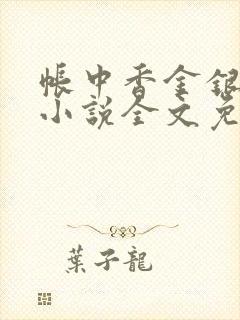 帳中香金銀
小說全文免
葉子龍